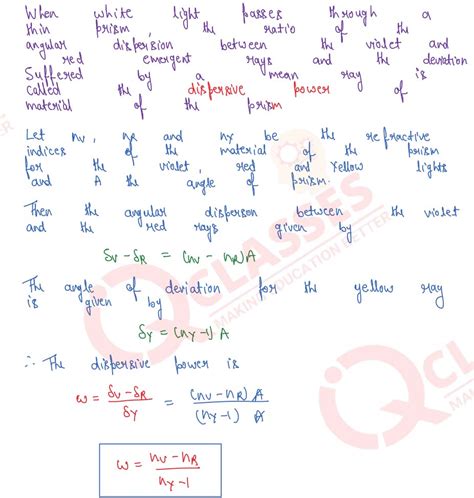 When white light passes through a
thin prism, the ratio of the
angular dispersion between the violet and
red emergent rays and the deviation
Suffered by a mean ray is
called the dispersive power of
material of the prism
Let nv, nR and ny be the refractive
indices of the material of the prism
for the violet, red and yellow lights
and A the angle of prism.
Then the angular disperson between the violet
and the red rays given by
δv - δR = (nv - nR) A
The angle of deviation for the yellow ray
is given by
δy = (ny - 1) A
∴ The dispersive power is
ω = (δv - δR)/δy = (nv - nR) A/(ny - 1) A
ω = (nv - nR)/(ny - 1)
IQ CLASSES
MAKING EDUCATION BETTER